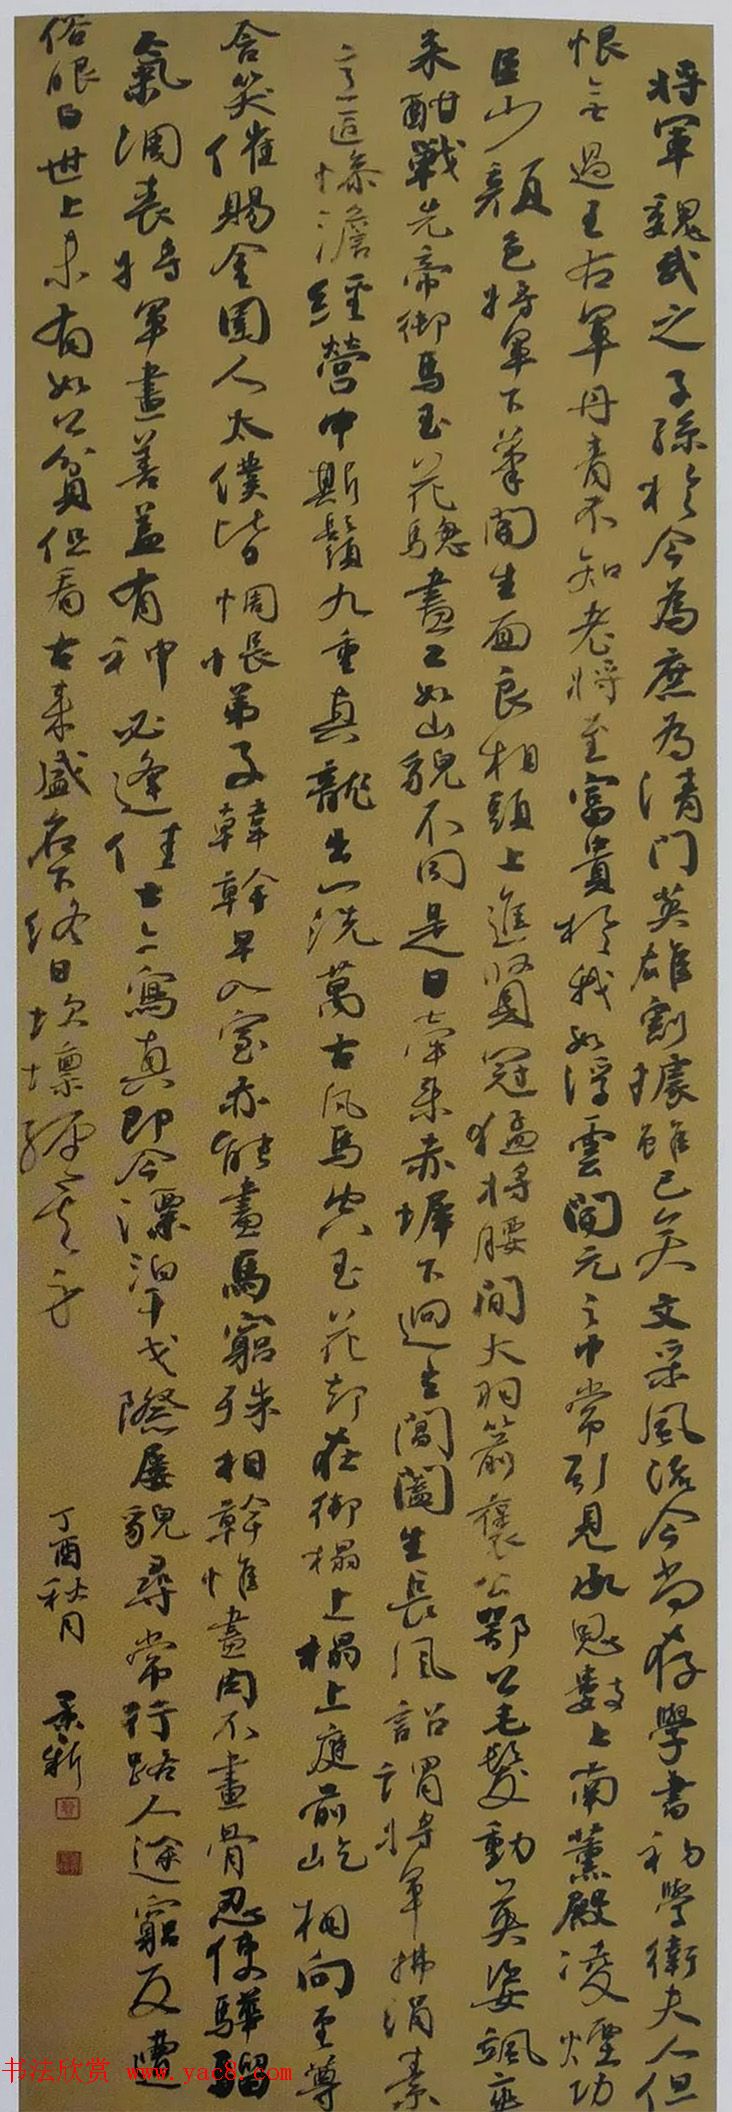 将軍魏武之子孫於今為庶為清門英雄割據雖已矣文采風流今尚存學書初學衛夫人但
恨無過王右軍丹青不知老將至富貴於我如浮雲開元之中常引見承恩數上南薰殿凌煙功
臣少顏色將軍下筆開生面良相頭上進賢冠猛將腰間大羽箭褒公鄂公毛髮動英姿颯爽
来酣戰先帝御馬玉花驄畫工如山貌不同是日牽来赤墀下迥立閶闔生長風詔謂將軍拂絹素
意匠慘澹經營中斯須九重真龍出一洗萬古凡馬空玉花却在御榻上榻上庭前屹相向至尊
含笑催賜金圉人太僕皆惆悵弟子韓幹早入室亦能畫馬窮殊相幹惟畫肉不畫骨忍使驊騮
氣凋喪將軍畫善蓋有神必逢佳士亦寫真即今漂泊干戈際屢貌尋常行路人途窮反遭
俗眼白世上未有如公貧但看古来盛名下終日坎壈纏其身
丁酉秋月
书法欣赏 www.yac8.com